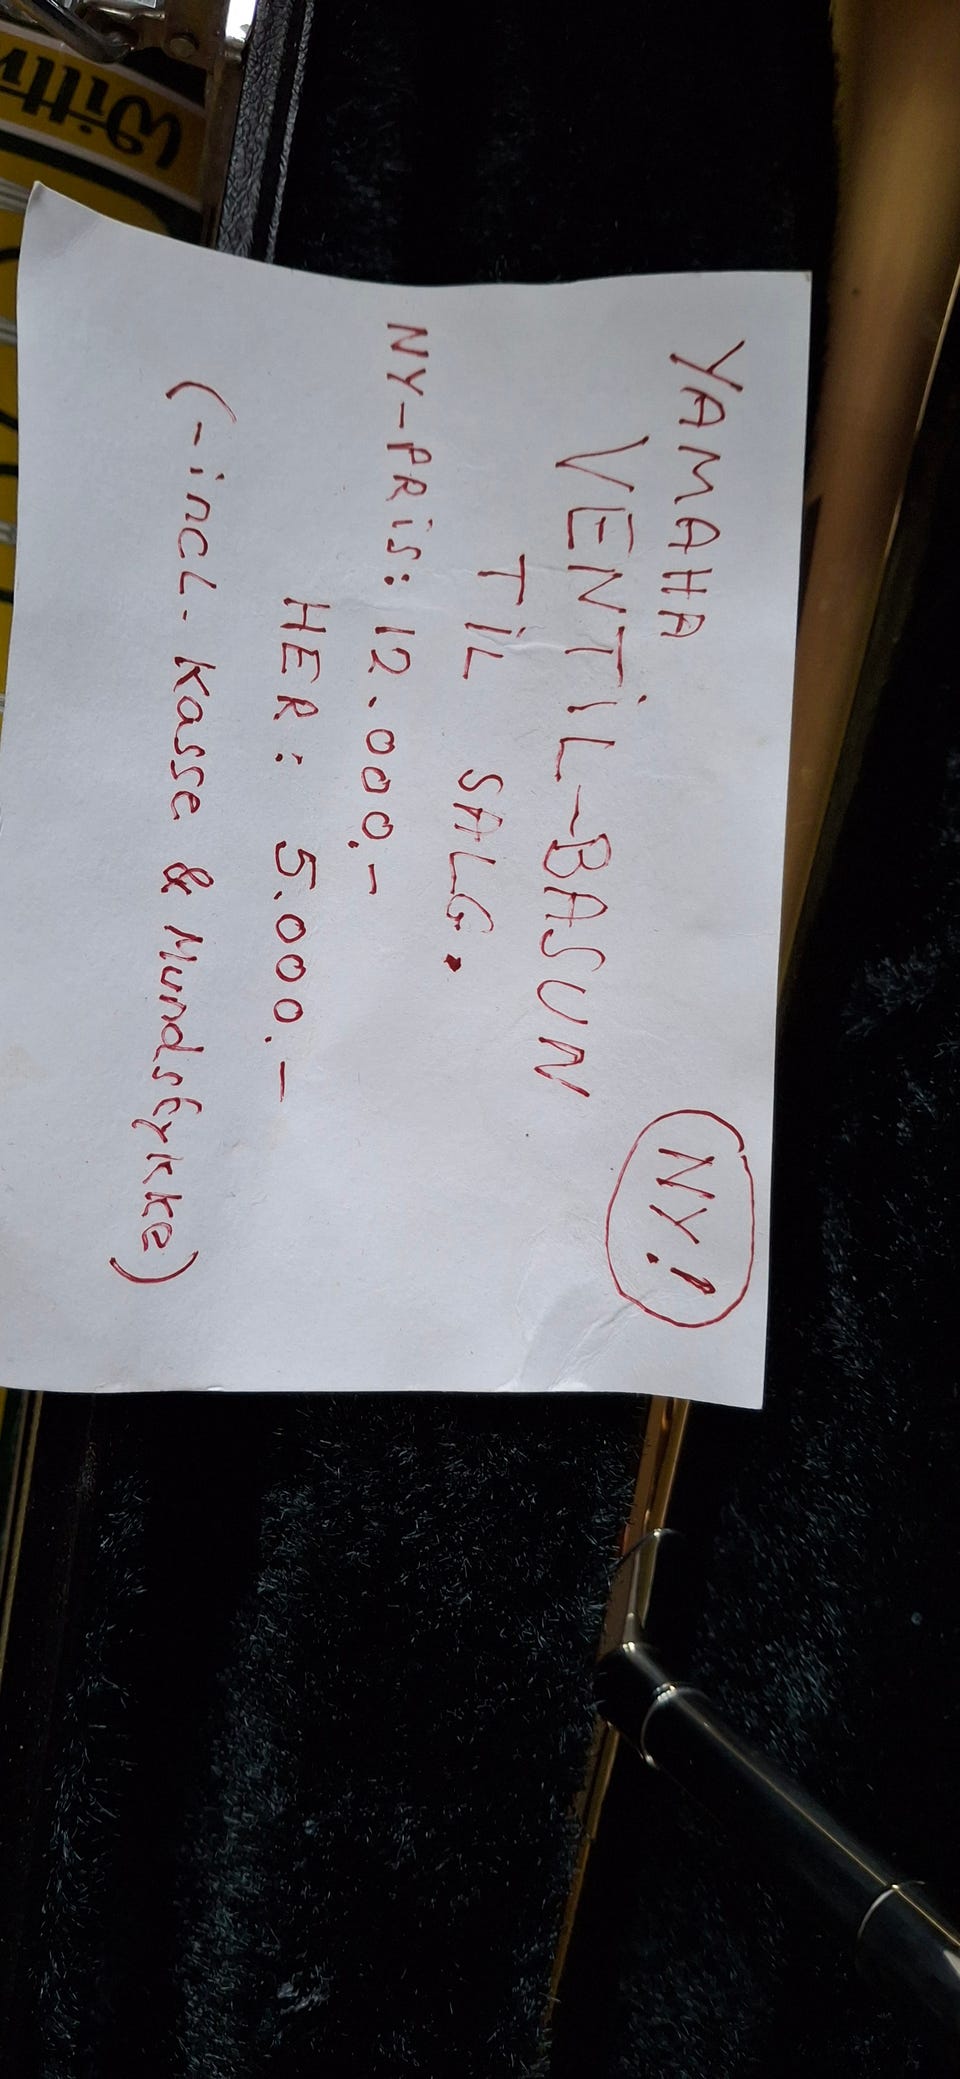 YAMAHA NY!
VENTIL-BASUN
TIL SALG.
NY-PRIS: 12.000.-
HER: 5.000.-
(-incl. Kasse & Mundstykke)